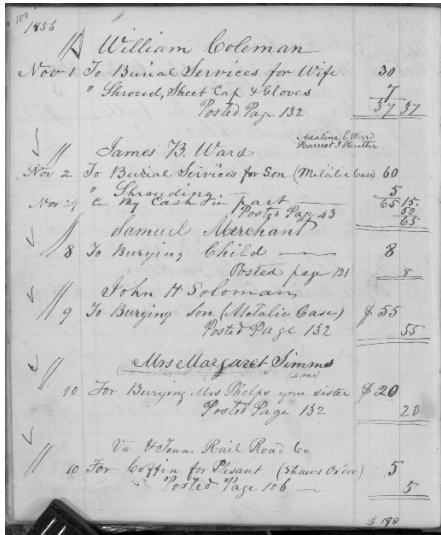 180
1856
William Coleman
Nov 1 To Burial Services for Wife 30
" Shroud, Sheet Cap & Gloves 7
Posted Page 132 37 37
Adaline E Ward
Harriet J Hutter
James B. Ward
Nov 2 To Burial Services for Son (Metalic Case) 60
" Shrouding 5
Nov 29 By Cash in part 65 15.
Posted Page 43 50
65
Samuel Merchant
8 To Burying Child 8
Posted page 131 8
John H Soloman
9 To Burying Son (Metalic Case) $55
Posted Page 132 55
Mrs Margaret Simms
10 For Burying Mrs Phelps your sister $20
Posted Page 132 20
Va & Tenn. Rail Road Co
10 For Coffin for Plesant (Shaws Order) 5
Posted Page 106 5
$ 190